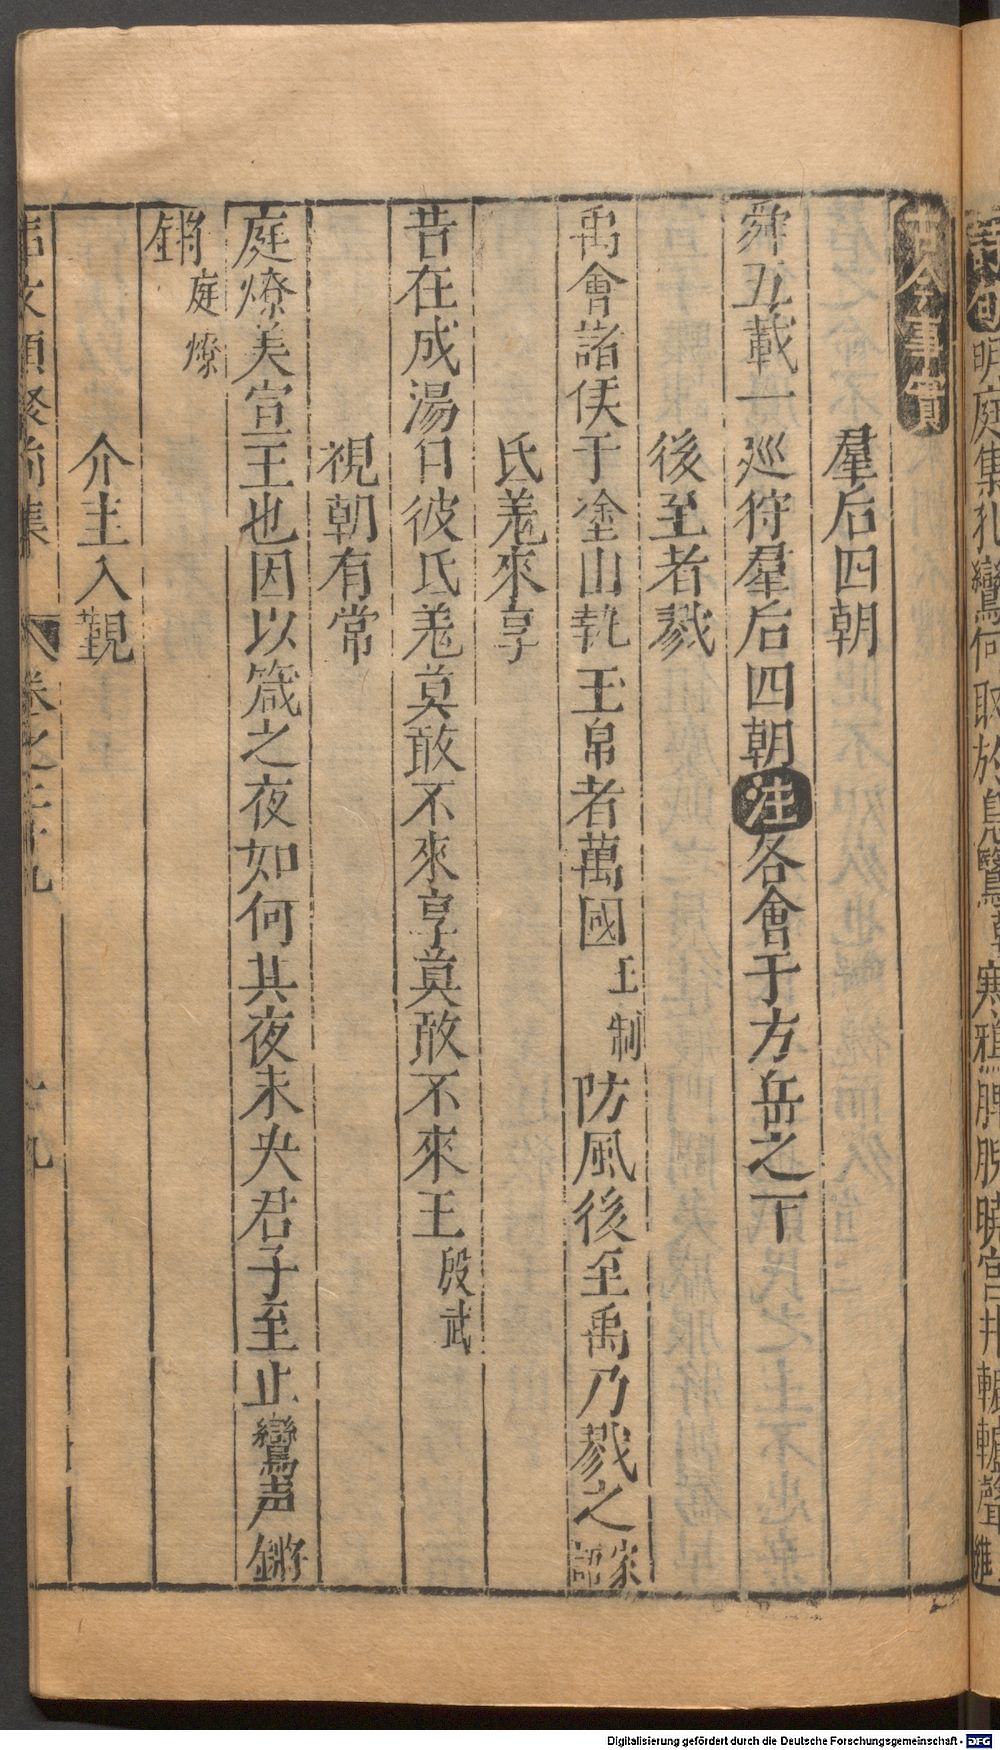 明庭集孔鸞何取於鳧鷖
寒鴉脾脫曉宮井轆轤聲
古今事實
羣后四朝
舜五載一巡狩羣后四朝注各會于方岳之下
後至者戮
禹會諸侯于塗山執玉帛者萬國王制防風後至禹乃戮之家語
氐羗來享
昔在成湯曰彼氐羗莫敢不來享莫敢不來王殷武
視朝有常
庭燎美宣王也因以箴之夜如何其夜未央君子至止鸞声鏘
鏘庭燎
介圭入覲
事文類聚前集 卷之二十九 十九
Digitalisierung gefördert durch die Deutsche Forschungsgemeinschaft - DFG